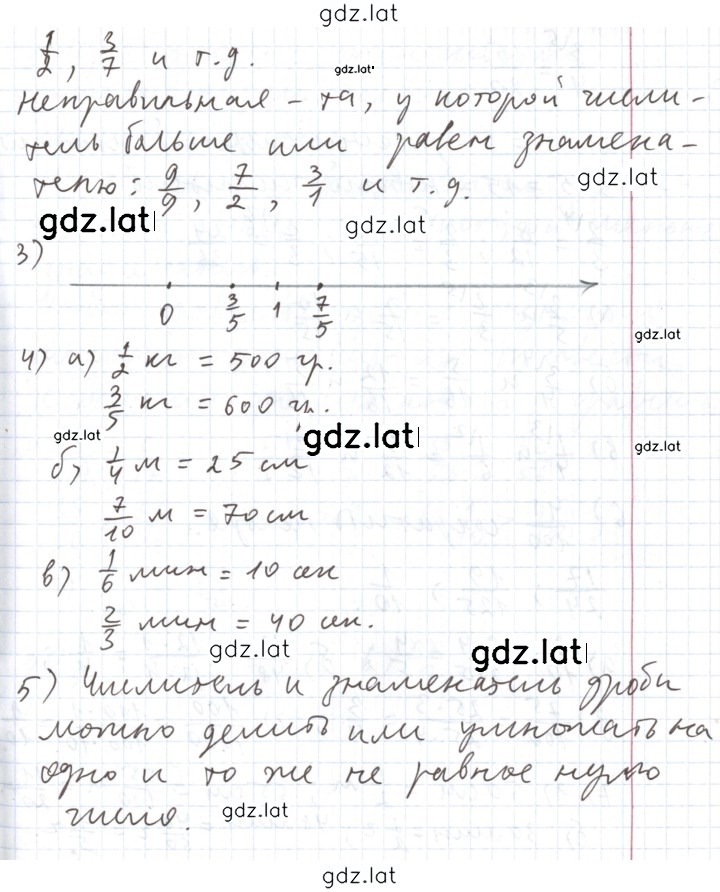 gdz.lat
1/2, 3/7 и т.д.
gdz.lat
Неправильная – та, у которой числи-
тель больше или равен знамена-
телю: 9/9, 7/2, 3/1 и т.д.
gdz.lat
gdz.lat gdz.lat
3)
0 3/5 1 7/5
gdz.lat
4) а) 1/2 кг = 500 гр.
3/5 кг = 600 гр.
gdz.lat gdz.lat gdz.lat
б) 1/4 м = 25 см
7/10 м = 70 см
в) 1/6 мин = 10 сек
2/3 мин = 40 сек.
gdz.lat gdz.lat
5) Числитель и знаменатель дроби
можно делить или умножать на
одно и то же не равное нулю
число.
gdz.lat
gdz.lat